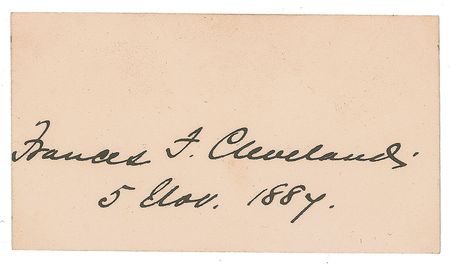 Frances F. Cleveland.
5 Nov. 1887.